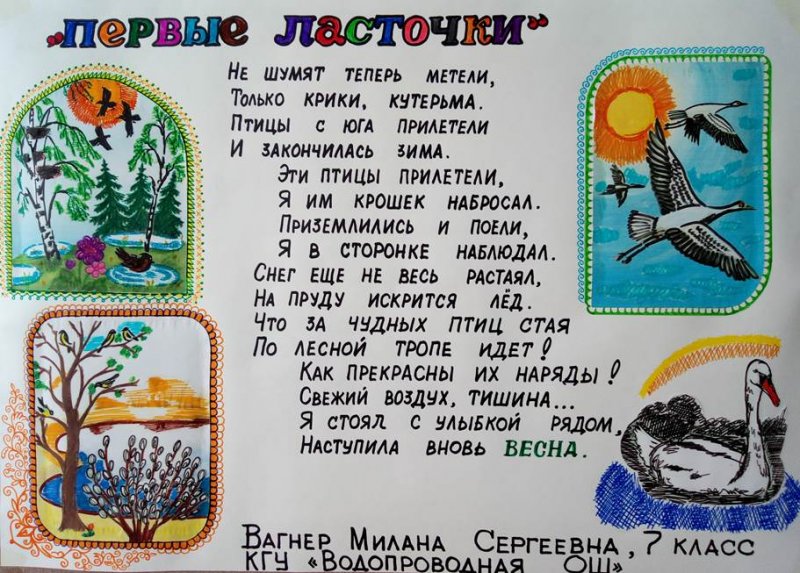 „ПЕРВЫЕ ЛАСТОЧКИ"
НЕ ШУМЯТ ТЕПЕРЬ МЕТЕЛИ,
ТОЛЬКО КРИКИ, КУТЕРЬМА.
ПТИЦЫ С ЮГА ПРИЛЕТЕЛИ
И ЗАКОНЧИЛАСЬ ЗИМА.
ЭТИ ПТИЦЫ ПРИЛЕТЕЛИ,
Я ИМ КРОШЕК НАБРОСАЛ.
ПРИЗЕМЛИЛИСЬ И ПОЕЛИ,
Я В СТОРОНКЕ НАБЛЮДАЛ.
СНЕГ ЕЩЕ НЕ ВЕСЬ РАСТАЯЛ,
НА ПРУДУ ИСКРИТСЯ ЛЁД.
ЧТО ЗА ЧУДНЫХ ПТИЦ СТАЯ
ПО ЛЕСНОЙ ТРОПЕ ИДЕТ!
КАК ПРЕКРАСНЫ ИХ НАРЯДЫ!
СВЕЖИЙ ВОЗДУХ, ТИШИНА...
Я СТОЯЛ С УЛЫБКОЙ РЯДОМ,
НАСТУПИЛА ВНОВЬ ВЕСНА.
ВАГНЕР МИЛАНА СЕРГЕЕВНА, 7 КЛАСС
КГУ «ВОДОПРОВОДНАЯ ОШ»